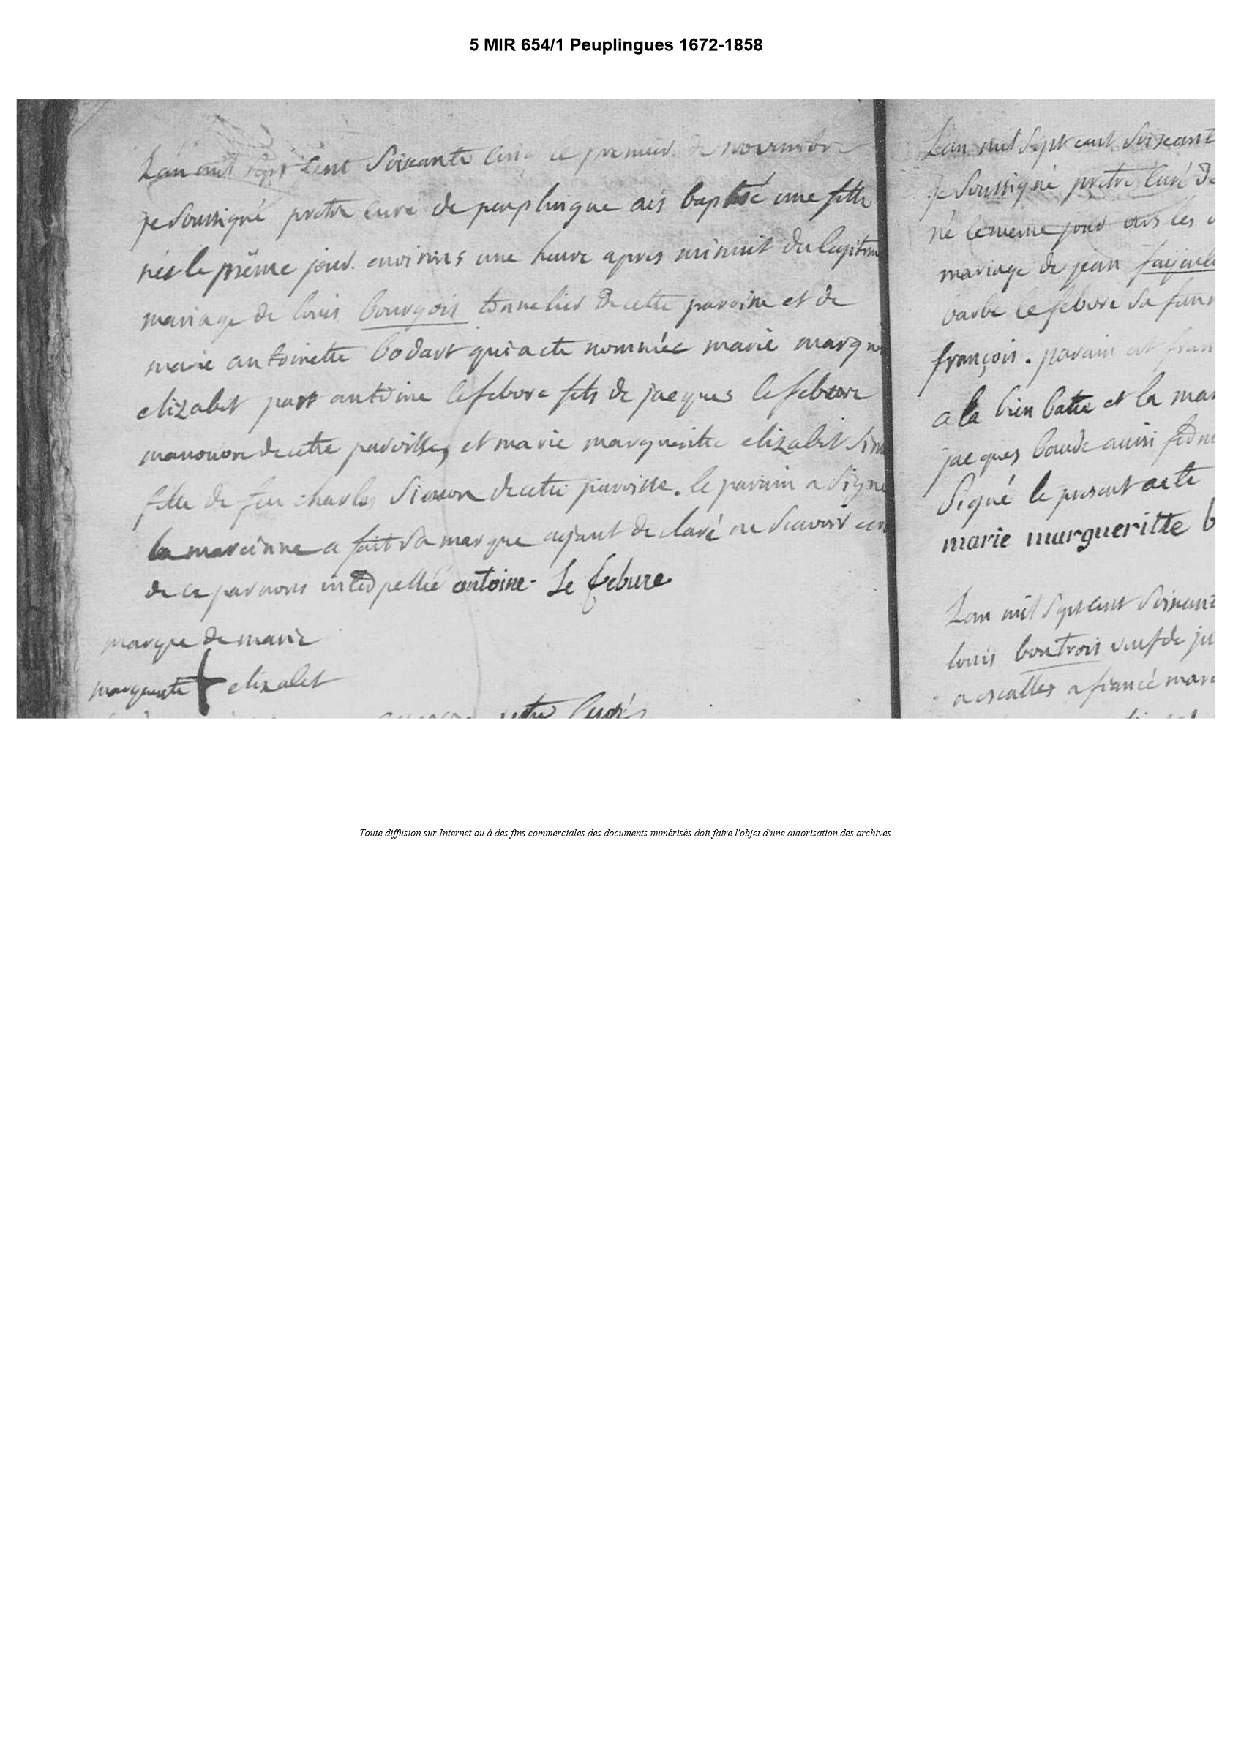 5 MIR 654/1 Peuplingues 1672-1858
L'an mil sept cent soixante cinq le premier de novembre
je soussigné pretre curé de peuplingue ais baptisé une fille
née le même jour environs une heure apres minuit du legitime
mariage de louis bourgois tonnelier de cette paroisse et de
marie antoinette bodart qui a ete nommée marie margu
elizabet part antoine lefebvre fils de jacques lefebvre
de cette paroisse, et marie margueritte elizabet Sim
fille de feu charles Simon de cette paroisse. le parain a signé
la mareinne a fait sa marque ayant declaré ne scavoir
de ce par nous interpellié antoine Le febure
marque de marie
marguerite elizabet
pretre Curé
Lan mil sept cent soixante
je soussigné pretre Curé de
né le meme jour
mariage de jean
barbe lefebvre sa fam
françois. parain est fran
a la bien batie et la mar
jacques baude aussi
signé le present acte
marie margueritte b
Lan mil sept cent soixant
louis bontrois veuf de ju
a escalles a fiancé mari
Toute diffusion sur Internet ou à des fins commerciales des documents numérisés doit faire l'objet d'une autorisation des archives